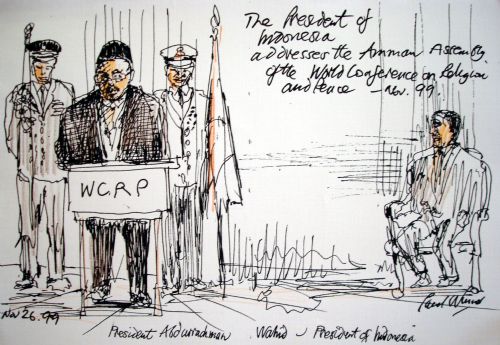 The President of
Indonesia
addresses the Amman Assembly
of the World Conference on Religion
and Peace – Nov. 99
WCRP
Nov 26. 99
President Abdurrahman Wahid – President of Indonesia